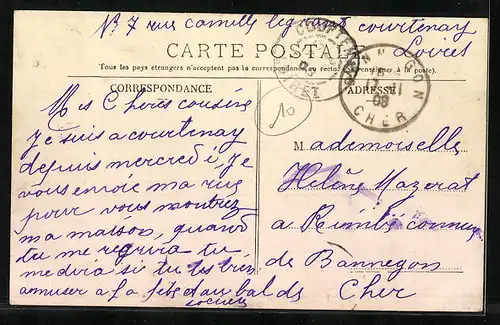 N° 7 rue Camille legrand courtenay
Loiret
CARTE POSTALE
Tous les pays étrangers n'acceptent pas la correspondance au recto. (Se renseigner à la poste).
CORRESPONDANCE
Mes Cheres cousine
Je suis a courtenay
depuis mercredi, je
vous envoie ma rue
pour vous montrez
ma maison, quand
tu me
tu
me dira si tu tes bien
amuser a la fête et au bal des
ADRESSE
BANNEGON
17 - 11
08
CHER
10
Mademoiselle
Helène Mazerat
a commune
de Bannegon
Cher